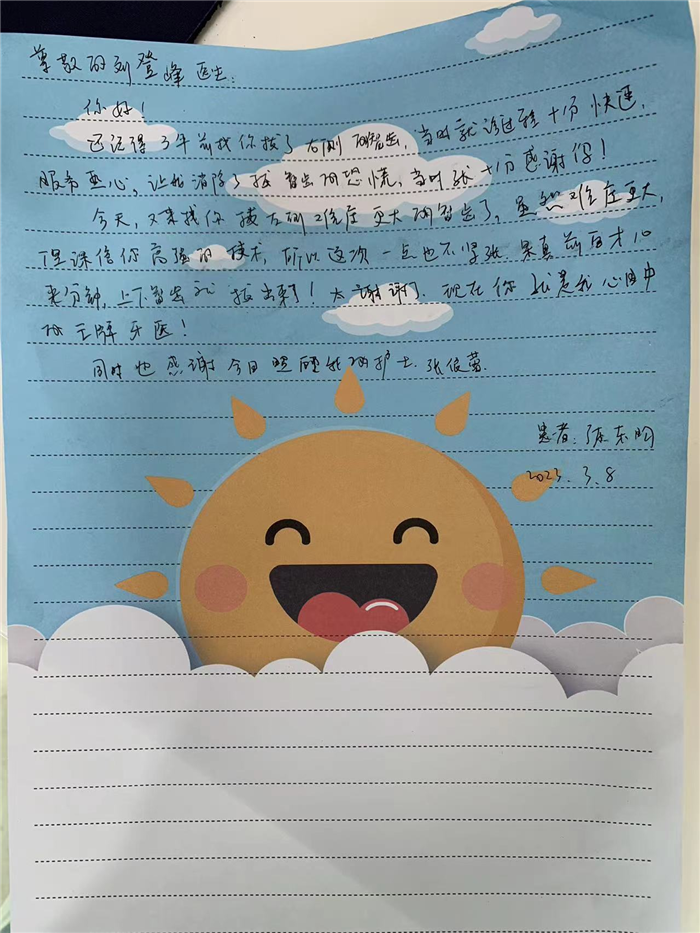 尊敬的刘登峰医生:
你好!
还记得3年前找你拔了右侧的智齿,当时就诊过程十分快速,
服务耐心,让我消除了拔智齿的恐慌,当时我十分感谢你!
今天,又来找你拔左侧难度更大的智齿了,虽然难度更大,
但深信你高强的技术,所以这次一点也不紧张,果真前后才10
来分钟,上下智齿就拔出来了!太谢谢了,现在你就是我心目中
的王牌牙医!
同时也感谢今日照顾我的护士张俊莹.
患者:陈东
2023.3.8